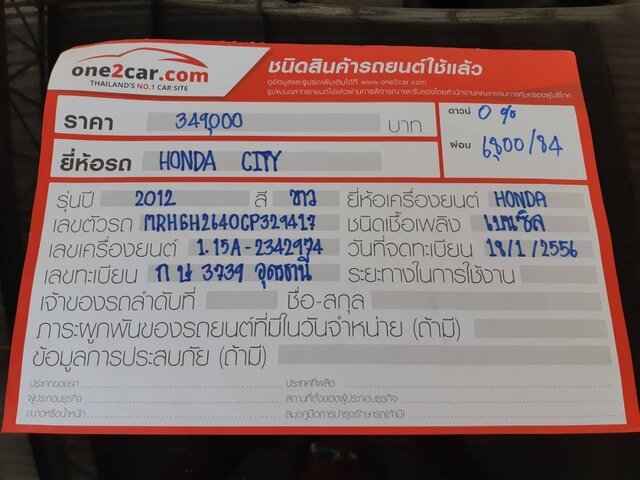 one2car.com
THAILAND'S NO.1 CAR SITE
ชนิดสินค้ารถยนต์ใช้แล้ว
ดูข้อมูลและรูปรถเพิ่มเติมได้ที่ www.one2car.com
รูปแบบฉลากรถยนต์ใช้แล้วผ่านการพิจารณาและรับรองโดยสำนักงานคณะกรรมการคุ้มครองผู้บริโภค
ราคา 349,000 บาท
ดาวน์ 0 %
ผ่อน 6,800/84
ยี่ห้อรถ HONDA CITY
รุ่นปี 2012 สี ขาว ยี่ห้อเครื่องยนต์ HONDA
เลขตัวรถ MRHGH2640CP329417 ชนิดเชื้อเพลิง เบนซิล
เลขเครื่องยนต์ 1.15A-2342974 วันที่จดทะเบียน 18/1/2556
เลขทะเบียน ก ษ 3739 อุดรธานี ระยะทางในการใช้งาน
เจ้าของรถลำดับที่ ชื่อ-สกุล
ภาระผูกพันของรถยนต์ที่มีในวันจำหน่าย (ถ้ามี)
ข้อมูลการประสบภัย (ถ้ามี)
ประเภทของรถ ประเทศที่ผลิต
ผู้ประกอบธุรกิจ สถานที่ตั้งของผู้ประกอบธุรกิจ
ขนาดหรือน้ำหนัก สมุดคู่มือการบำรุงรักษารถ(ถ้ามี)